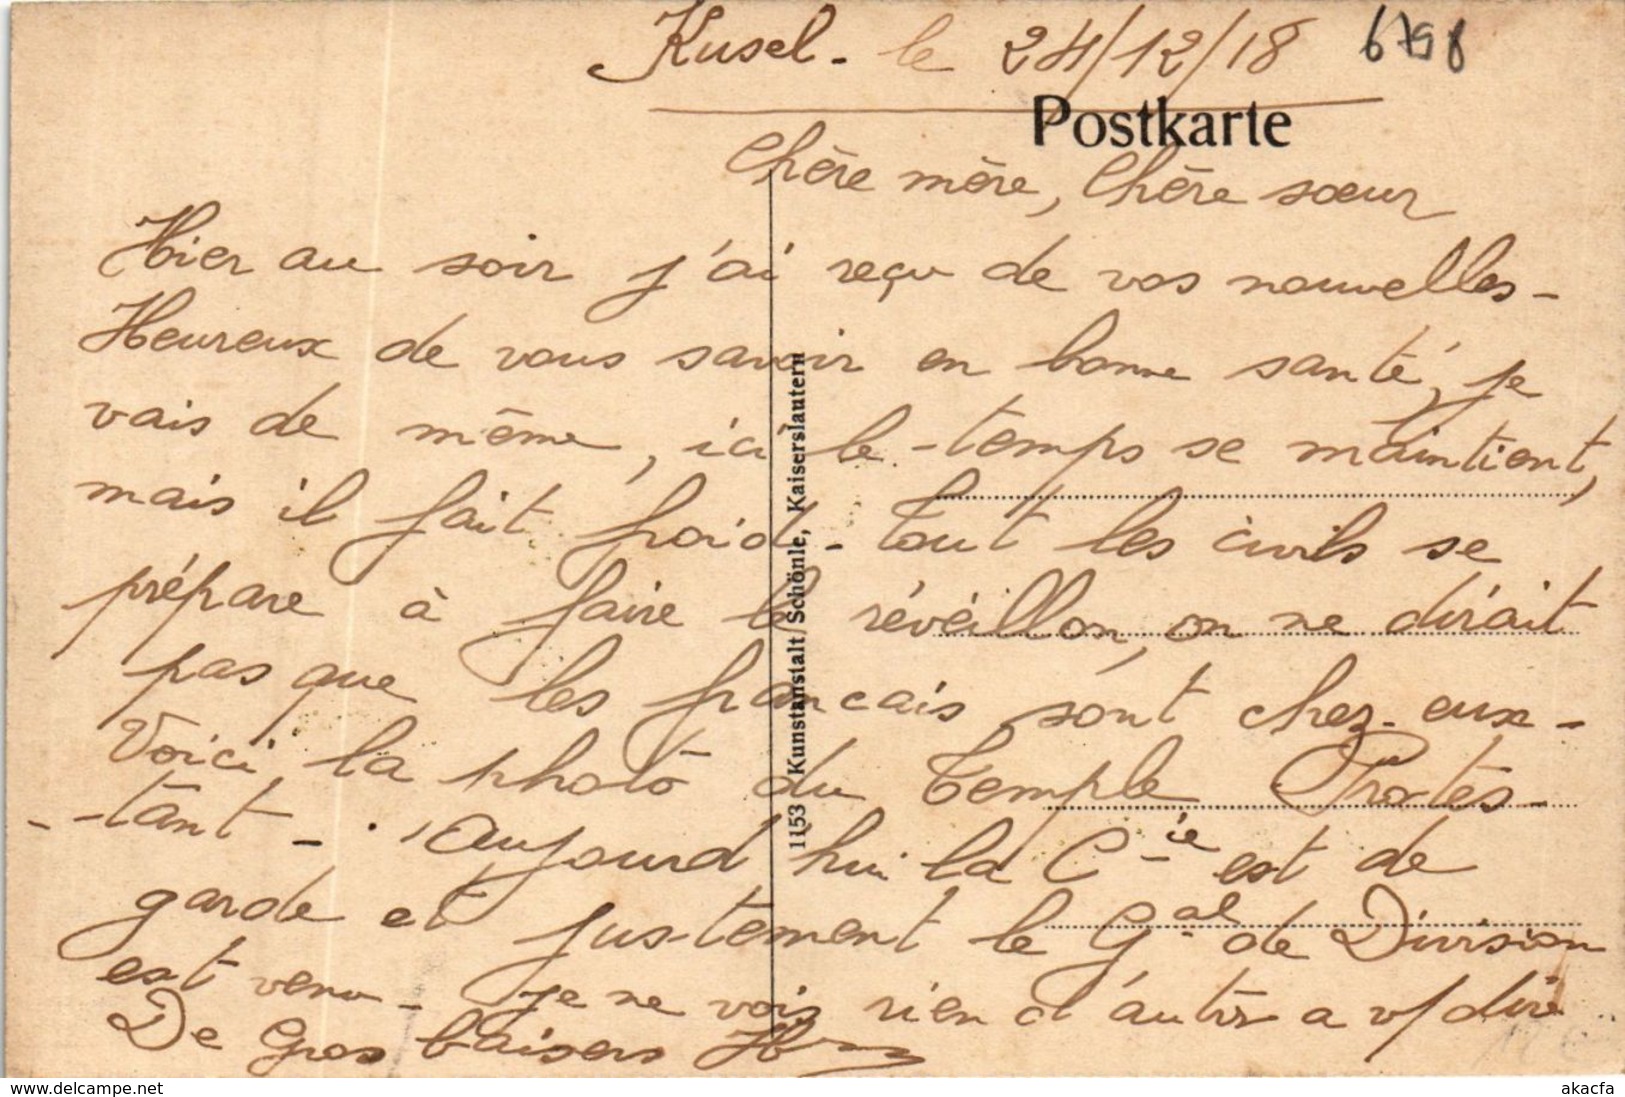 Kusel - le 24/12/18 6798
Postkarte
Chère mère, Chère sœur
Hier au soir j'ai reçu de vos nouvelles -
Heureux de vous savoir en bonne santé, je
vais de même, ici le temps se maintient,
mais il fait froid - Tout les civils se
prépare à faire le réveillon, on ne dirait
pas que les francais sont chez-eux -
Voici la photo du Temple Protes-
-tant - Aujourd'hui la Cie est de
garde et justement le Gal de Division
est venu - je ne vois rien d'autre a v/ dire
De Gros baisers
1153 Kunstanstalt Schönle, Kaiserslautern
https://www.delcampe.net akacfa